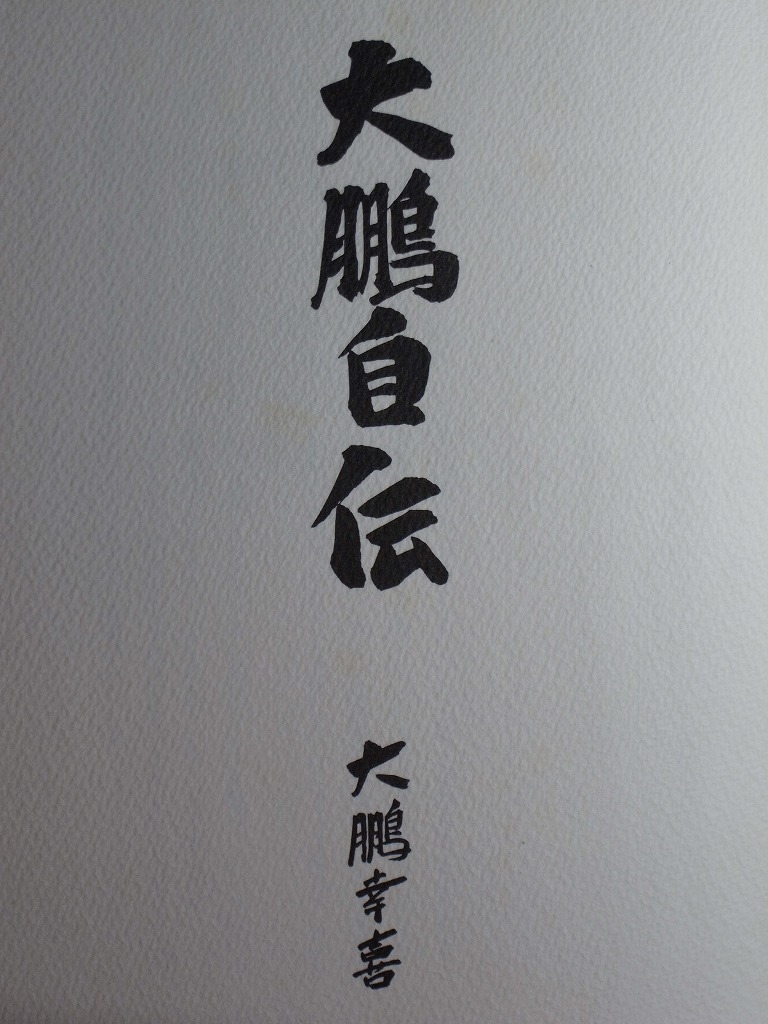 大鵬自伝
大鵬幸喜